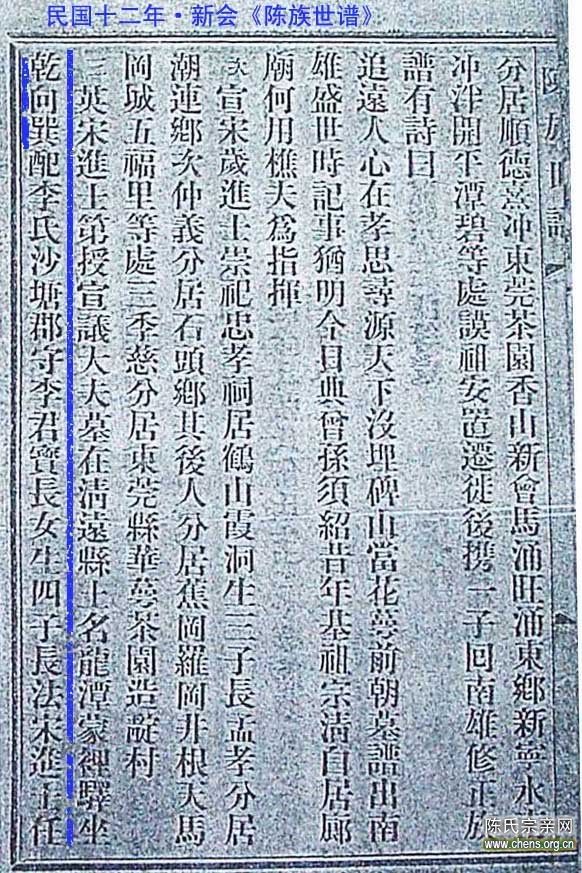 民国十二年·新会《陈族世谱》
陳族世譜
分居順德熹冲東莞茶園香山新會馬涌旺涌東鄉新寧永
冲泮開平潭碧等處謨祖安置遷徙後携一子囘南雄修正族
譜有詩曰
追遠人心在孝思尋源天下沒埋碑山當花萼前朝墓譜出南
雄盛世時記事猶明今日典曾孫須紹昔年基祖宗清白居廊
廟何用樵夫爲指揮
次宣宋歲進士崇祀忠孝祠居鶴山霞洞生三子長孟孝分居
潮連鄉次仲義分居石頭鄉其後人分居蕉岡羅岡井根大馬
岡城五福里等處三季慈分居東莞縣華萼茶園造靛村
三英宋進士第授宣議大夫墓在清遠縣土名龍潭蒙裡驛坐
乾向巽配李氏沙塘郡守李君寶長女生四子長法宋進士任
陈氏宗亲网
www.chens.org.cn